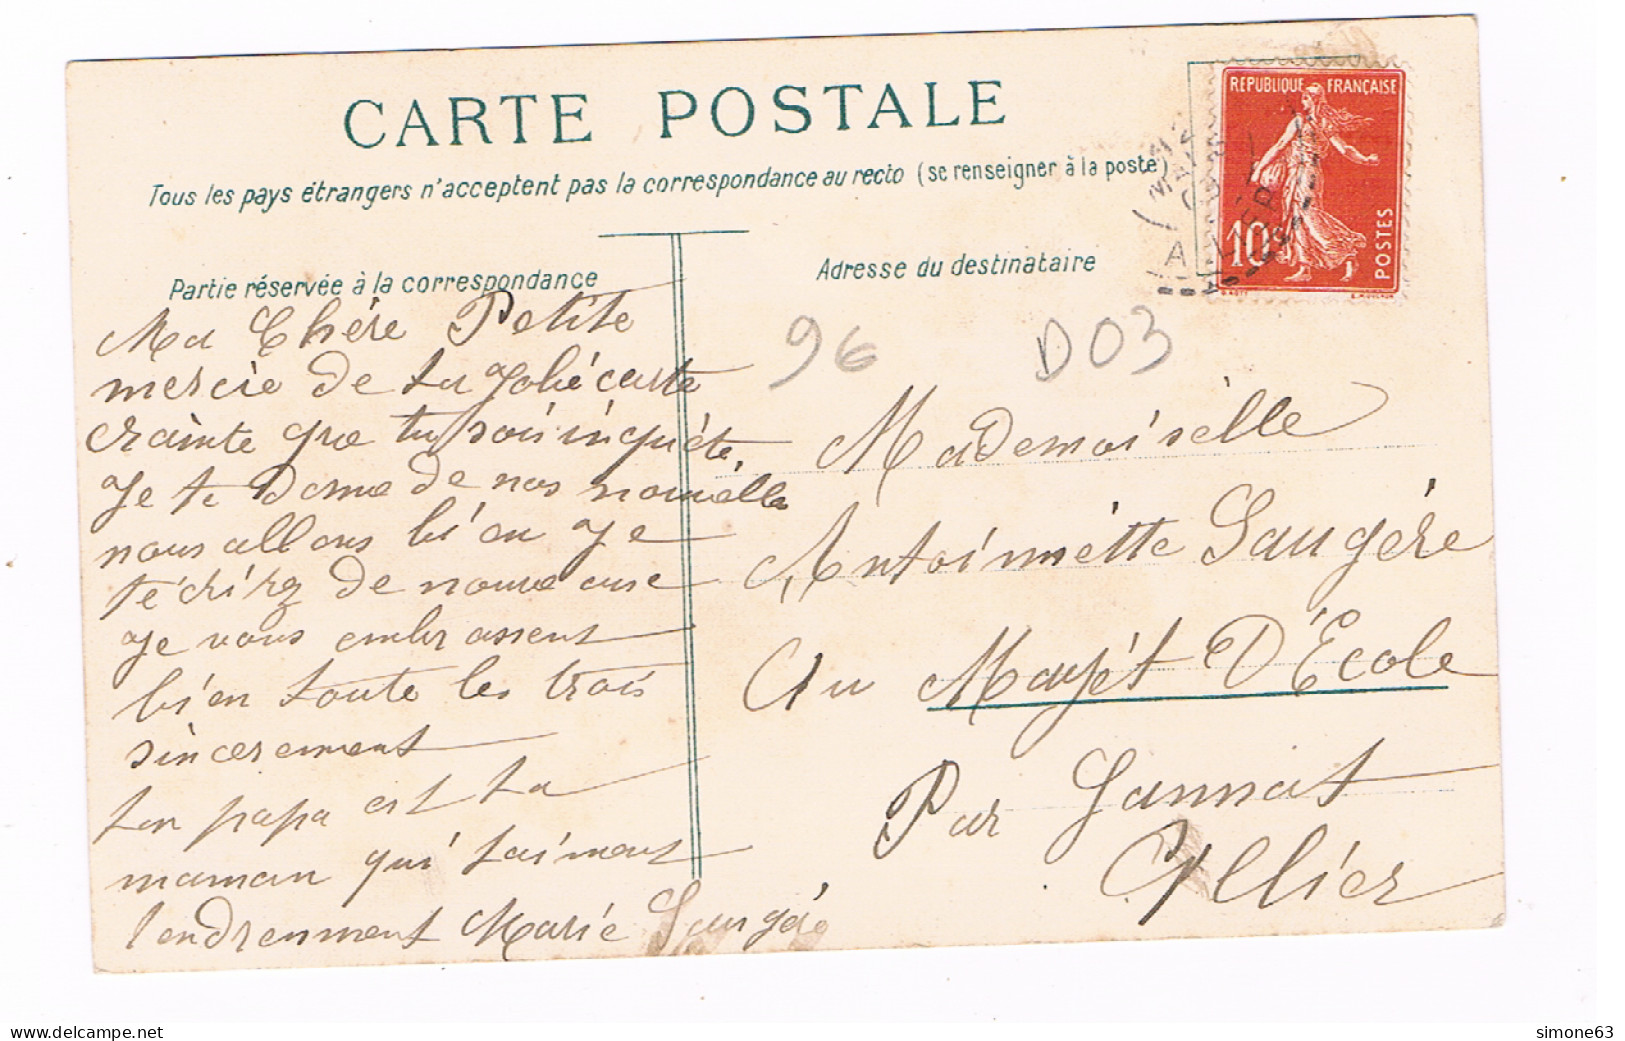 CARTE POSTALE
Tous les pays étrangers n'acceptent pas la correspondance au recto (se renseigner à la poste)
Partie réservée à la correspondance
Ma Chère Petite
mercie de ta Jolie carte
crainte que tu sois inquiéte,
Je te done de nos nouvelles
nous allons bien Je
t'écrirez de nouveau
Je vous embrassent
bien toute les trois
sincerement
ton papa est ta
maman qui t'aiment
tendrenment Marie Saugére
Adresse du destinataire
96 D03
Mademoiselle
Antoinnette Saugére
Au Mayét D'École
Par Gannat
Allier
REPUBLIQUE FRANÇAISE
10c
POSTES
ALLIER
simone63